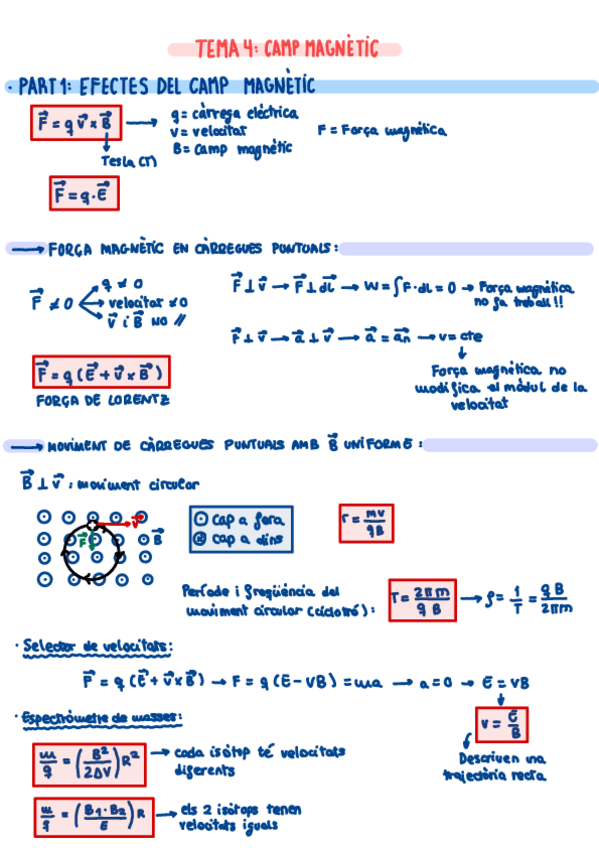 TEMA 4: CAMP MAGNÈTIC
· PART 1: EFECTES DEL CAMP MAGNÈTIC
F⃗ = q v⃗ × B⃗ → q = càrrega elèctrica
v = velocitat
B = camp magnètic
F = Força magnètica
↓
Tesla (T)
F⃗ = q · E⃗
→ FORÇA MAGNÈTIC EN CÀRREGUES PUNTUALS:
F⃗ ≠ 0
q ≠ 0
velocitat ≠ 0
v⃗ i B⃗ NO //
F⃗ ⊥ v⃗ → F⃗ ⊥ dl⃗ → W = ∫ F · dl = 0 → Força magnètica
no fa treball!!
F⃗ ⊥ v⃗ → a⃗ ⊥ v⃗ → a⃗ = a⃗n → v = cte
↓
Força magnètica no
modifica el mòdul de la
velocitat
F⃗ = q (E⃗ + v⃗ × B⃗)
FORÇA DE LORENTZ
→ MOVIMENT DE CÀRREGUES PUNTUALS AMB B⃗ UNIFORME:
B⃗ ⊥ v⃗ : moviment circular
v⃗
F⃗
B⃗
⊙ cap a fora
⊗ cap a dins
r = mv / qB
Període i freqüència del
moviment circular (ciclotró):
T = 2πm / qB → f = 1/T = qB / 2πm
· Selector de velocitats:
F⃗ = q (E⃗ + v⃗ × B⃗) → F = q (E - VB) = ma → a = 0 → E = VB
↓
v = E / B
Descriuen una
trajectòria recta
· Espectròmetre de masses:
m/q = (B² / 2ΔV) R² → cada isòtop té velocitats
diferents
m/q = (B1 · B2 / E) R → els 2 isòtops tenen
velocitats iguals